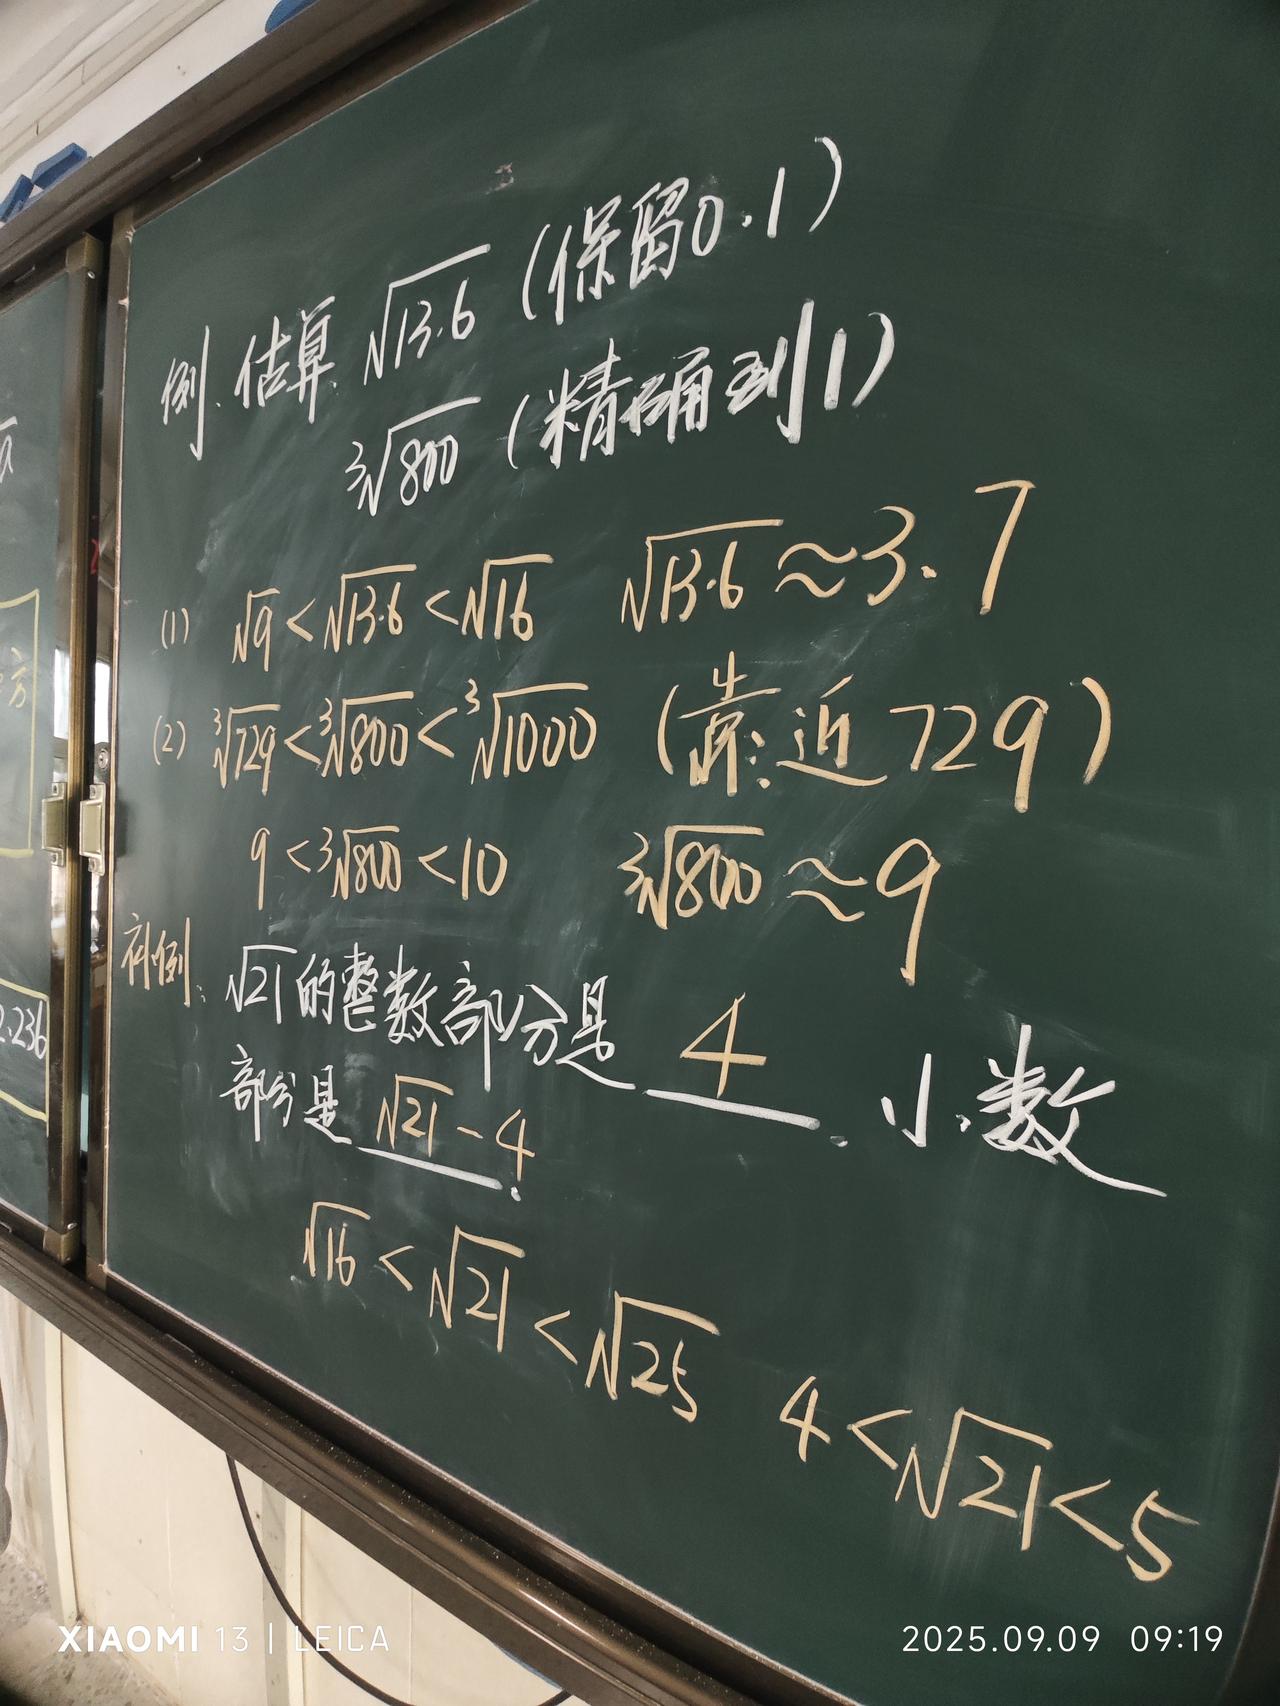 例. 估算 √13.6 (保留0.1)
∛800 (精确到1)
(1) √9 < √13.6 < √16 √13.6 ≈ 3.7
(2) ∛729 < ∛800 < ∛1000 (靠近729)
9 < ∛800 < 10 ∛800 ≈ 9
补例. √21 的整数部分是 4 . 小数
部分是 √21 - 4 .
√16 < √21 < √25 4 < √21 < 5
方
2.236
XIAOMI 13 | LEICA
2025.09.09 09:19